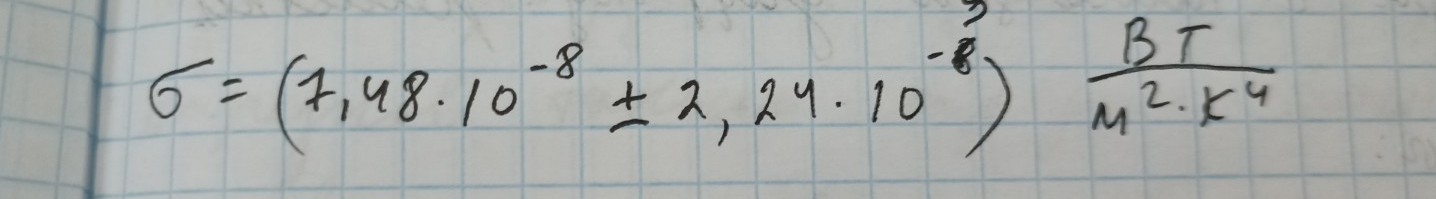 σ = (7,48 · 10⁻⁸ ± 2,24 · 10⁻⁸) Вт/м² · К⁴